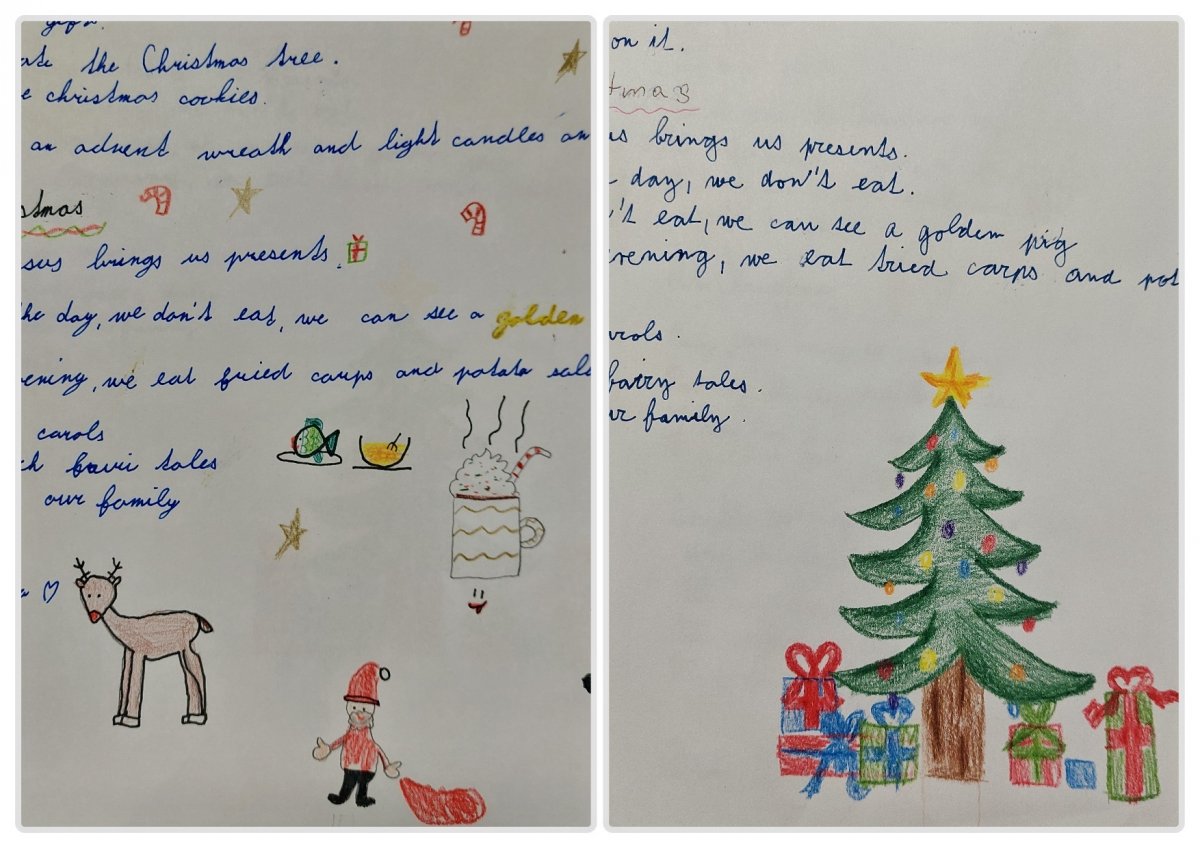 gifs.
ate the Christmas tree.
e christmas cookies.
an advent wreath and light candles on
stmas
sus brings us presents.
he day, we don't eat, we can see a golden
ening, we eat fried carps and potato sala
carols
ch tales
our family
a
on it.
tmas
us brings us presents.
day, we don't eat.
't eat, we can see a golden pig
vening, we eat fried carps and pot
rols.
fairy tales.
ur family.